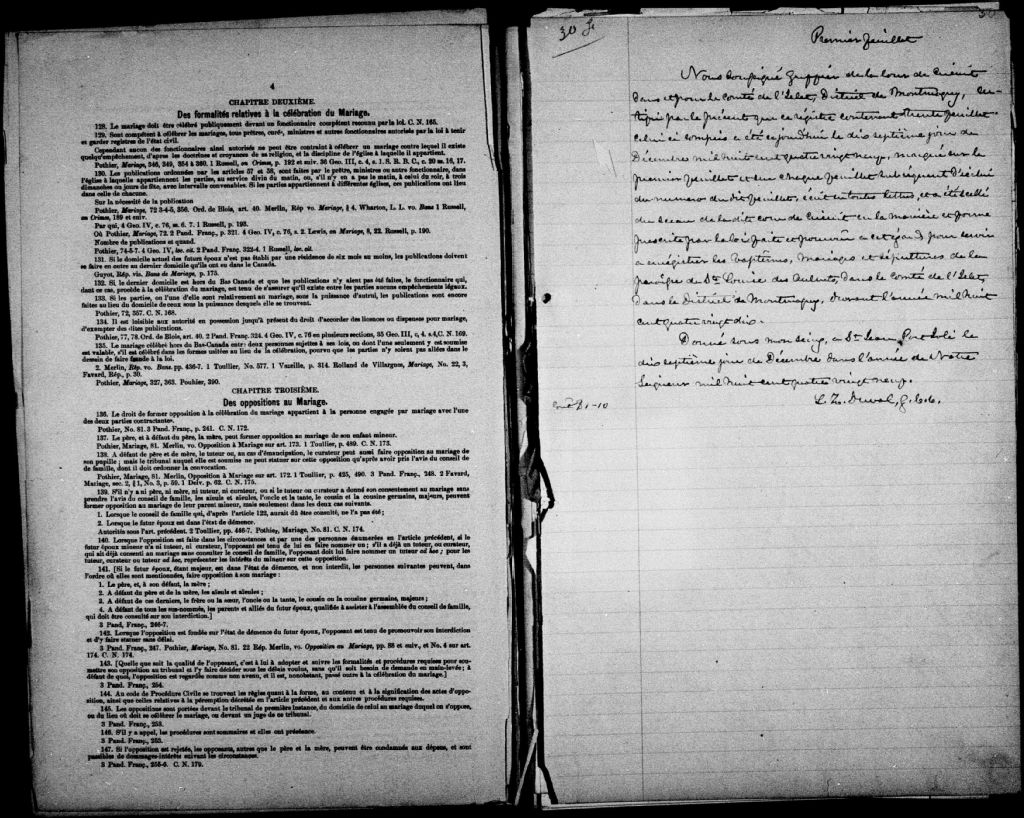 4
CHAPITRE DEUXIÈME.
Des formalités relatives à la célébration du Mariage.
128. Le mariage doit être célébré publiquement devant un fonctionnaire compétent reconnu par la loi. C. N. 165.
129. Sont compétent à célébrer les mariages, tous prêtres, curé, ministres et autres fonctionnaires autorisés par la loi à tenir
et garder registres de l'état civil.
Cependant aucun des fonctionnaires ainsi autorisés ne peut être contraint à célébrer un mariage contre lequel il existe
quelqu'empêchement, d'après les doctrines et croyances de sa religion, et la discipline de l'église à laquelle il appartient.
Pothier, Mariage, 346, 349, 354 à 360. 1 Russell, on Crimes, p. 192 et suiv. 36 Geo. III, c. 4, s. 1. S. R. B. C., c. 20 ss. 16, 17.
130. Les publications ordonnées par les articles 57 et 58, sont faites par le prêtre, ministres ou autre fonctionnaire, dans
l'église à laquelle appartiennent les parties, au service divin du matin, ou, s'il n'y en a pas le matin, à celui du soir, à trois
dimanches ou jours de fête, avec intervalle convenables. Si les parties appartiennent à différentes églises, ces publications ont lieu
dans celle de chacune.
Sur la nécessité de la publication
Pothier, Mariage, 72 3-4-5, 356. Ord. de Blois, art. 40. Merlin, Rép vo. Mariage, § 4. Wharton, L. L. vo. Bans 1 Russell,
on Crimes, 189 et suiv.
Par qui, 4 Geo. IV, c. 76, ss. 6. 7. 1 Russell, p. 193.
Où Pothier, Mariage, 72. 2 Pand. Franç., p. 321. 4 Geo. IV, c. 76, s. 2. Lewis, on Mariage, 8, 22. Russell, p. 190.
Nombre de publications et quand.
Pothier, 74-5-7. 4 Geo. IV, loc. cit. 2 Pand. Franç. 323-4. 1 Russell, loc. cit.
131. Si le domicile actuel des futurs époux n'est pas établi par une résidence de six mois au moins, les publications doivent
se faire en outre au dernier domicile qu'ils ont eu dans le Canada.
Guyot, Rép. vis. Bans de Mariage, p. 173.
132. Si le dernier domicile est hors du Bas Canada et que les publications n'y aient pas été faites, le fonctionnaire qui,
dans ce cas, procède à la célébration du mariage, est tenu de s'assurer qu'il existe entre les parties aucuns empêchements légaux.
133. Si les parties, ou l'une d'elle sont relativement au mariage, sous la puissance d'autrui, les publications sont encore
faites au lieu du domicile de ceux sous la puissance desquels elle se trouvent.
Pothier, 72, 357. C. N. 168.
134. Il est loisible aux autorité en possession jusqu'à présent du droit d'accorder des licences ou dispenses pour mariage,
d'exempter des dites publications.
Pothier, 77, 78. Ord. de Blois, art. 40. 2 Pand. Franç. 324. 4 Geo. IV, c. 76 en plusieurs sections, 35 Geo. III, c, 4. s.4, C. N. 169.
135. Le mariage célébré hors du Bas-Canada entre deux personnes sujettes à ses lois, ou dont l'une seulement y est soumise
est valable, s'il est célébré dans les formes usitées au lieu de la célébration, pourvu que les parties n'y soient pas allées dans le
dessein de faire fraude à la loi.
2. Merlin, Rép. vo. Bans. pp. 436-7. 1 Toullier, No. 577. 1 Vazeille, p. 314. Rolland de Villargues, Mariage, No. 22, 3,
Favard, Rép., p. 30.
Pothier, Mariage, 327, 363. Pouhier, 390.
CHAPITRE TROISIÈME.
Des oppositions au Mariage.
136. Le droit de former opposition à la célébration du mariage appartient à la personne engagée par mariage avec l'une
des deux parties contractantes.
Pothier, No. 81. 3 Pand. Franç., p. 241. C. N. 172.
137. Le père, et à défaut du père, la mère, peut former opposition au mariage de son enfant mineur.
Pothier, Mariage, 81. Merlin, vo. Opposition à Mariage sur art. 173. 1 Toullier, p. 489. C. N. 173.
138. A défaut de père et de mère, le tuteur ou, au cas d'émancipation, le curateur peut aussi faire opposition au mariage de
son pupille; mais le tribunal auquel elle est soumise ne peut statuer sur cette opposition qu'après avoir pris l'avis du conseil de
de famille, dont il doit ordonner la convocation.
Pothier, Mariage, 81. Merlin, Opposition à Mariage sur art. 172. 1 Toullier, p. 425, 490. 3 Pand. Franç., 248. 2 Favard,
Mariage, sec. 2, § 1, No. 3, p. 59. 1 Delv. p. 62. C. N. 175.
139. S'il n'y a ni père, ni mère, ni tuteur, ni curateur, ou si le tuteur ou curateur a donné son consentement au mariage sans
prendre l'avis du conseil de famille, les aïeuls et aïeules, l'oncle et la tante, le cousin et la cousine germains, majeurs, peuvent
former opposition au mariage de leur parent mineur, mais seulement dans les deux cas suivants.
1. Lorsque le conseil de famille qui, d'après l'article 122, aurait dû être consulté, ne l'a pas été;
2. Lorsque le futur époux est dans l'état de démence.
Autorités sous l'art. précédent. 2 Toullier, pp. 446-7. Pothier, Mariage, No. 81. C. N. 174.
140. Lorsque l'opposition est faite dans les circonstances et par une des personnes énumérées en l'article précédent, si le
futur époux mineur n'a ni tuteur, ni curateur, l'opposant est tenu de lui en faire nommer un; s'il a déjà un tuteur, ou curateur,
qui ait déjà consenti au mariage sans consulter le conseil de famille, l'opposant doit lui faire nommer un tuteur ad hoc; pour les
tuteur, curateur ou tuteur ad hoc, représenter les intérêts du mineur sur cette opposition.
141. [Si le futur époux, étant majeur, est dans l'état de démence, et non interdit, les personnes suivantes peuvent, dans
l'ordre où elles sont mentionnées, faire opposition à son mariage:
1. Le père, et, à son défaut, la mère;
2. A défaut du père et de la mère, les aïeuls et aïeules;
3. A défaut de ces derniers, le frère ou la sœur, l'oncle ou la tante, le cousin ou la cousine germains, majeurs;
4. A défaut de tous les sus-nommés, les parents et alliés du futur époux, qualifiés à assister à l'assemblée du conseil de famille,
qui doit être consulté sur son interdiction.]
3 Pand. Franç., 246-7.
142. Lorsque l'opposition est fondée sur l'état de démence du futur époux, l'opposant est tenu de promouvoir son interdiction
et d'y faire statuer sans délai.
3 Pand. Franç., 247. Pothier, Mariage, No. 81. 22 Rép. Merlin, vo. Opposition au Mariage, pp. 88 et suiv., et No. 4 sur art.
174. C. N. 174.
143. [Quelle que soit la qualité de l'opposant, c'est à lui à adopter et suivre les formalités et procédures requises pour sou-
mettre son opposition au tribunal et l'y faire décider sous les délais voulus, sans qu'il soit besoin de demande en main-levée; à
défaut de quoi, l'opposition est regardée comme non avenu, et il est, nonobstant, passé outre à la célébration du mariage.]
3 Pand. Franç., 254.
144. Au code de Procédure Civile se trouvent les règles quant à la forme, au contenu et à la signification des actes d'oppo-
sition, ainsi que celles relatives à la péremption décrétée en l'article précédent et aux autres procédures requises.
145. Les oppositions sont portées devant le tribunal de première instance, du domicile de celui au mariage duquel on s'oppose,
ou du lieu où doit se célébrer le mariage, ou devant un juge de ce tribunal.
3 Pand. Franç., 253.
146. S'il y a appel, les procédures sont sommaires et elles ont préséance.
3 Pand. Franç., 253.
147. Si l'opposition est rejetée, les opposants, autres que le père et la mère, peuvent être condamnés aux dépens, et sont
passibles de dommages-intérêts suivant les circonstances.
3 Pand. Franç., 255-6. C. N. 179.
30 f.
30
Premier feuillet
Nous soussigné Greffier de la Cour de Circuit
dans et pour le Comté de l'Islet, District de Montmagny, cer-
tifions par le présent que ce registre contenant trente feuillets
celui-ci compris a été aujourd'hui le dix septième jour de
Décembre mil huit cent quatre vingt neuf, marqué sur le
premier feuillet et sur chaque feuillet subséquent
du numéro du dit feuillet, écrit en toutes lettres, et a été scellé
du sceau de la dite cour de Circuit en la manière et forme
prescrite par la loi faite et pourvue à cet égard pour servir
à enrégistrer les baptêmes, mariages et sépultures de la
paroisse de Ste Louise des Aulnets, dans le Comté de l'Islet,
dans le District de Montmagny, durant l'année mil huit
cent quatre vingt dix.
Donné sous mon seing, à St Jean Port Joli le
dix septième jour de Décembre dans l'année de Notre
Seigneur mil huit cent quatre vingt neuf.
L. Z. Duval, g. c. c.